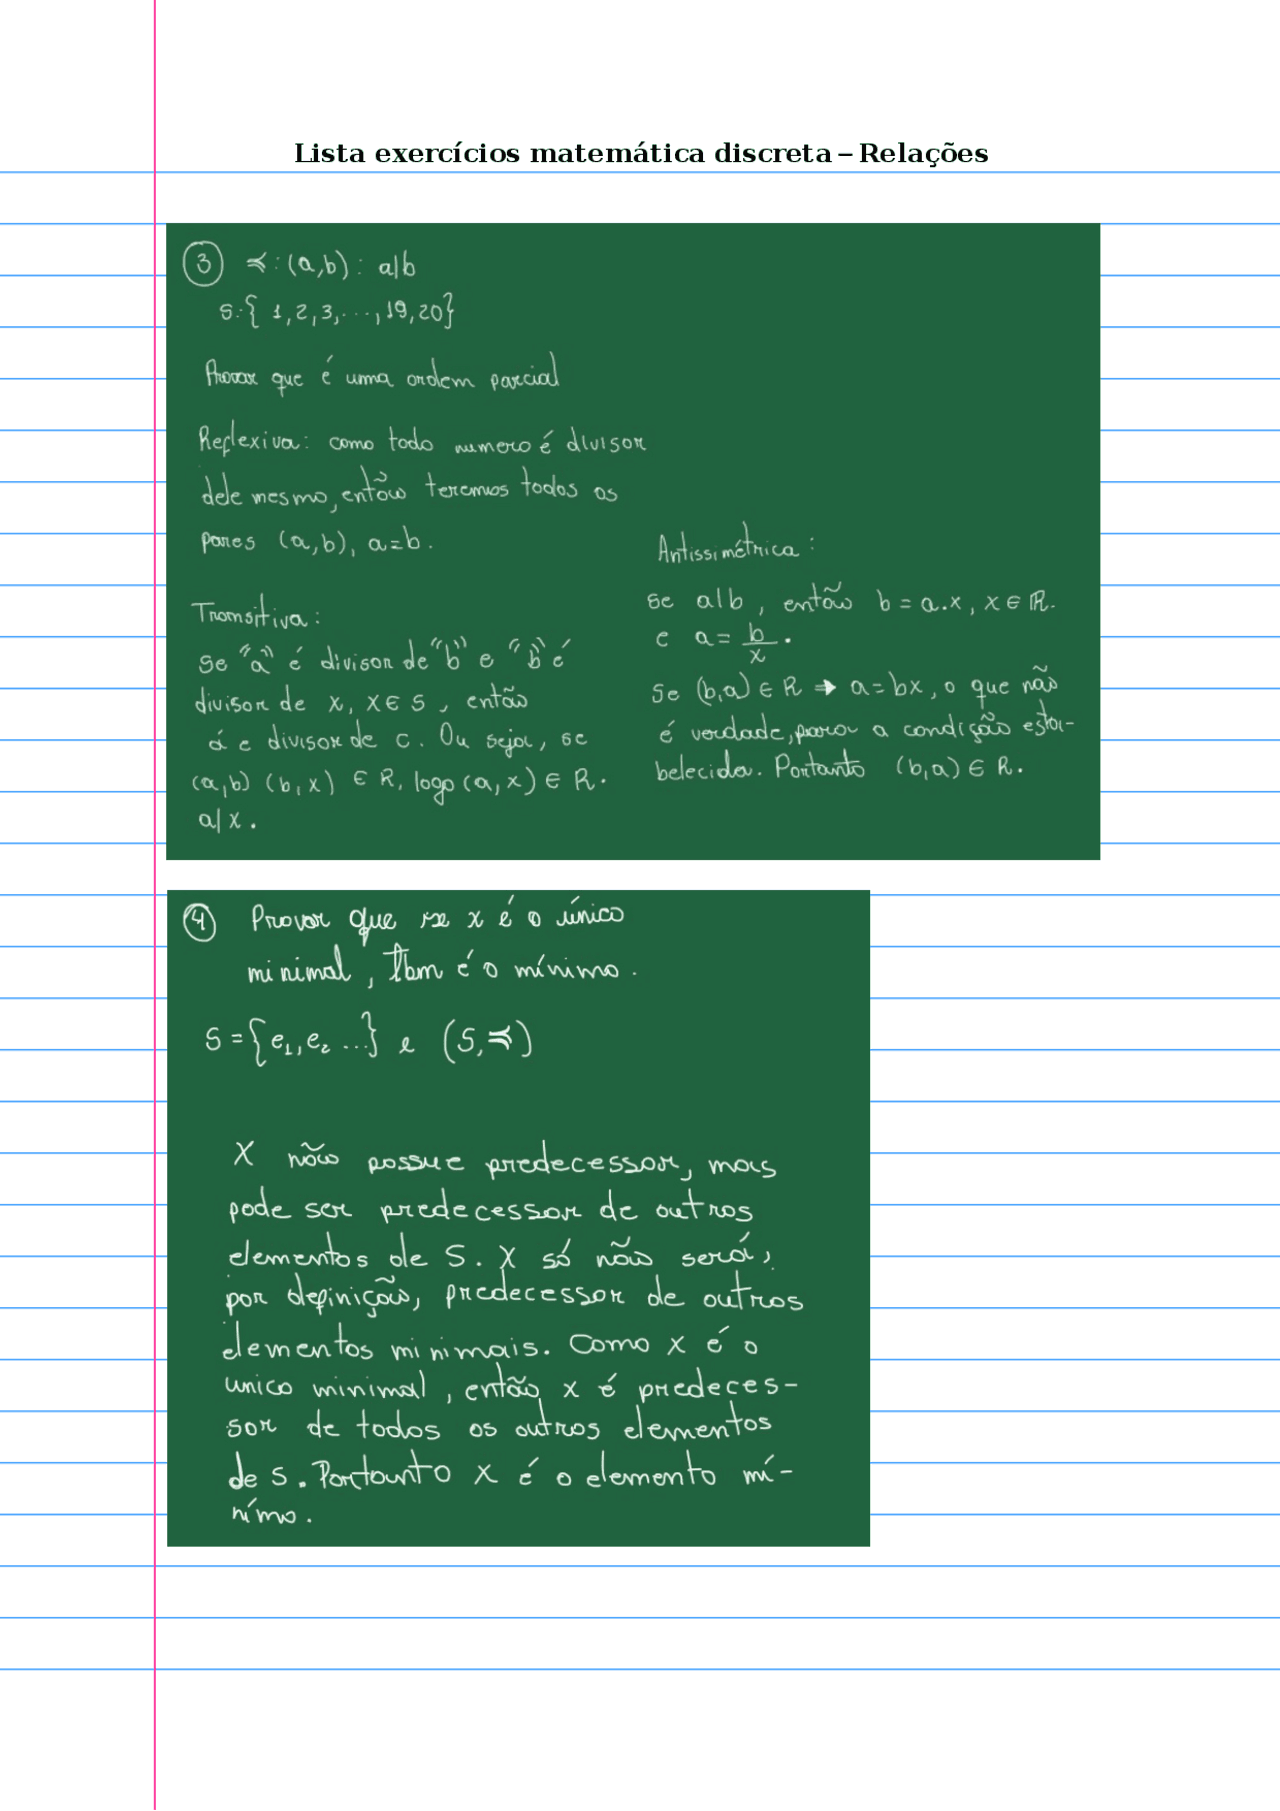 Lista exercícios matemática discreta – Relações
3 ≼ : (a,b) : a|b
S:{ 1,2,3,...,19,20}
Provar que é uma ordem parcial
Reflexiva: como todo numero é divisor
dele mesmo, então teremos todos os
pares (a,b), a=b.
Transitiva:
Se "a" é divisor de "b" e "b" é
divisor de x, x ∈ S, então
a e divisor de c. Ou seja, se
(a,b) (b,x) ∈ R, logo (a,x) ∈ R.
a|x.
Antissimétrica:
Se a|b, então b = a.x, x ∈ R.
e a = b/x.
Se (b,a) ∈ R → a=bx, o que não
é verdade, para a condição esta-
belecida. Portanto (b,a) ∈ R.
4 Provar que se x é o único
minimal, tbm é o mínimo.
S = {e₁, e₂ ...} e (S, ≼)
X não possue predecessor, mas
pode ser predecessor de outros
elementos de S. X só não será,
por definição, predecessor de outros
elementos minimais. Como x é o
unico minimal, então x é predeces-
sor de todos os outros elementos
de S. Portanto x é o elemento mí-
nimo.